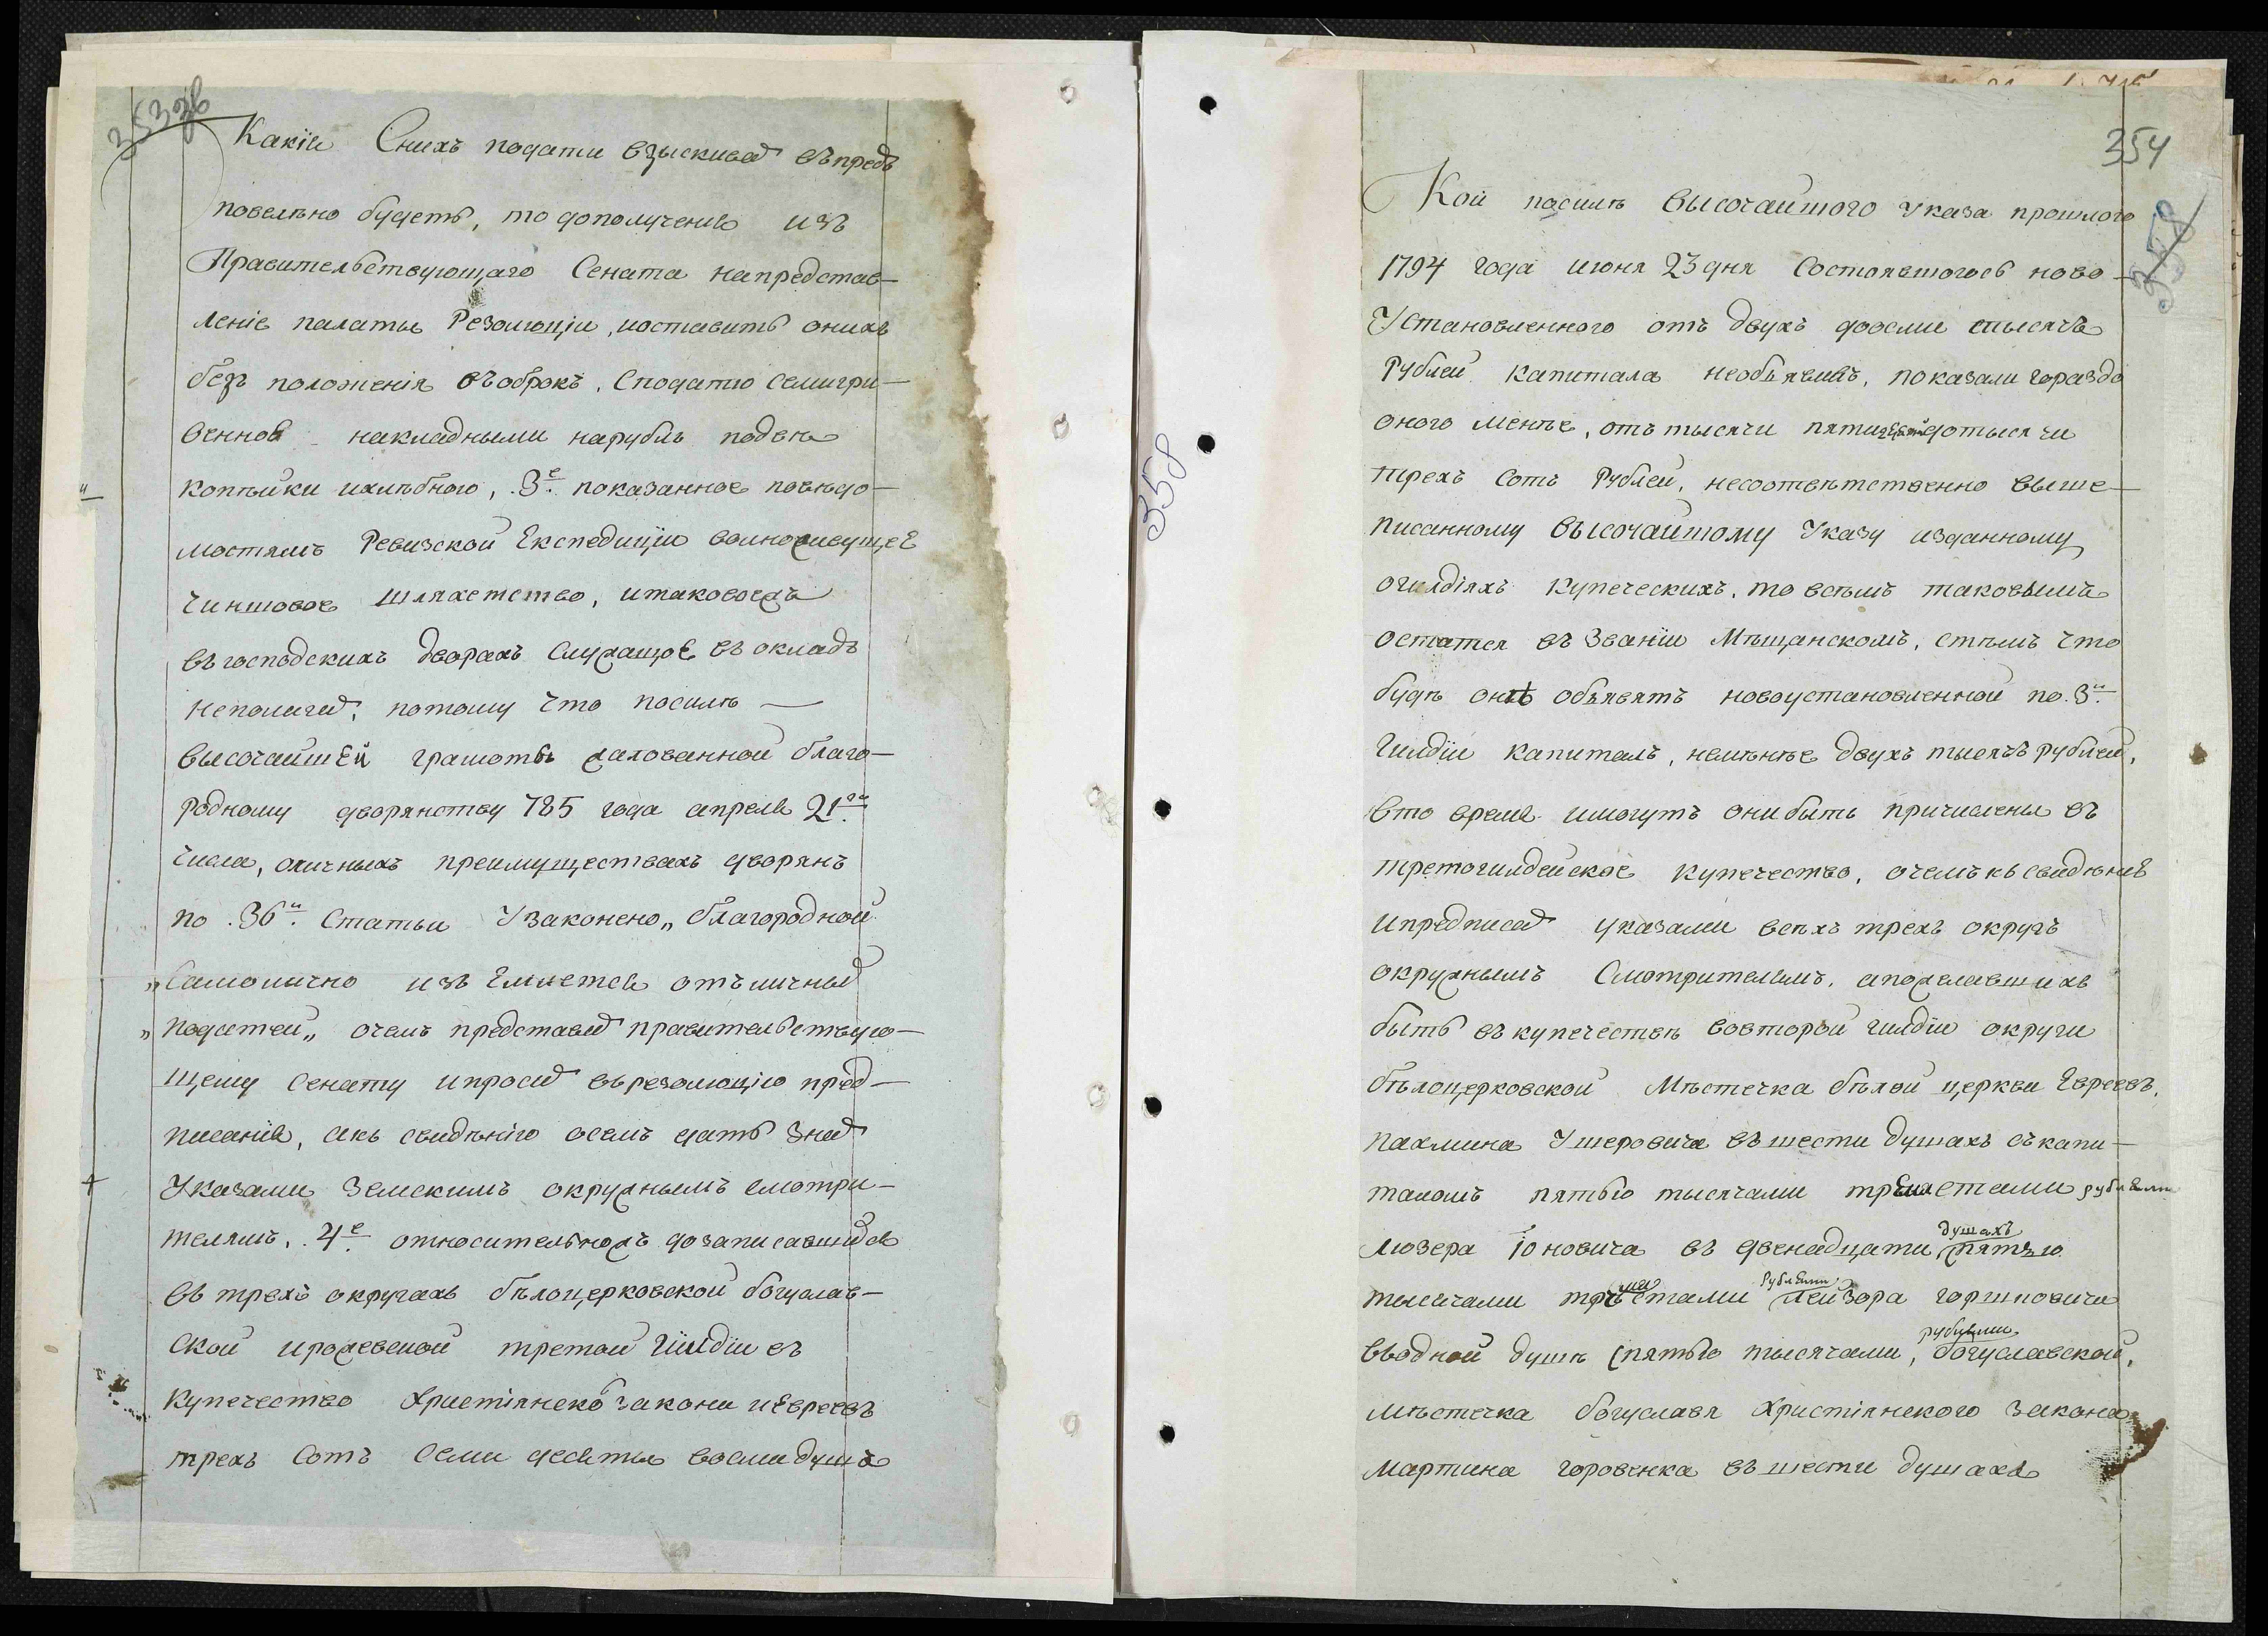 353 зв
Какїи Снихъ подати взыскиват въпредъ
повелѣно будетъ, то дополученія изъ
Правительствующаго Сената напредстав—
леніе палаты Резолюціи, иоставить онихъ
безъ положенія въоброкъ, Сподатю Семигри—
венной накладными нарубль подвѣ
копѣйки ихлѣбного, .3е. показанное повѣдо—
мостямъ Ревизской Експедицїи волноживущее
Чиншовое Шляхетство, итаковоежъ
въгосподскихъ дворахъ Служащое въ окладъ
неполагат; потому Что посилѣ —
Высочайшей грамоты жалованной благо—
родному дворянству 785 года апреля 21го.
Числа, оличныхъ преимуществахъ дворянъ
по .36й. Статьи Узаконено „ благородной
„ Самолично изъ Емлется отъличных
„ податей „ очемъ представит правительствую—
щему Сенату ипросит върезолюцію пред—
писанія, акъ свидѣнію осемъ дать Знат
Указами Земскимъ окружнымъ смотри—
телямъ, .4е. относительножъ дозаписавшихся
въ трехъ округахъ бѣлоцерковской богуслав—
ской ирожевской третой гїлдіи въ
купечество Христіянско закона иЕвреевъ
трехъ Сотъ Семи десяты восми душъ
358
354
358
Кои посилѣ Высочайшого Указа прошлого
1794 года июня 23 дня Состоявшогось ново—
Установленного отъ двухъ довсми тысячъ
Рублей капитала необъявивъ, показали гораздо
оного менѣе, отъ тысячи пяти дотысячи
трехъ Сотъ Рублей, несоотвѣтственно выше—
писанному Высочайшому Указу изданному
огилдіяхъ купеческихъ, то всѣмъ таковымъ
остатся въ Званїи Мѣщанскомъ, стѣмъ Что
будѣ онѣ объявятъ новоустановленной по .3й.
гилдїи капиталъ, немѣнѣе двухъ тысячъ рублей,
вто время имогутъ онибыть причислены въ
третогилдейское купечество, очемъ къ свидѣнію
ипредписат указами всѣхъ трехъ округъ
окружнымъ Смотрителямъ, апожелавшихъ
быть въкупечествѣ вовторой гилдіи округи
бѣлоцерковской Мѣстечка бѣлой церкви Евреевъ,
пахмина Ушеровича въшести душахъ съкапи—
таломъ пятью тысячами тремястами рублями
люзера Iоновича въ двенадцати душахъ пятью
тысячами тремястами рублями лейзора горшковича
вводной душѣ спятью тысячами, рублями богуславской,
мѣстечка богуславя Христіянского закона
Мартина горовенка въшести душахъ